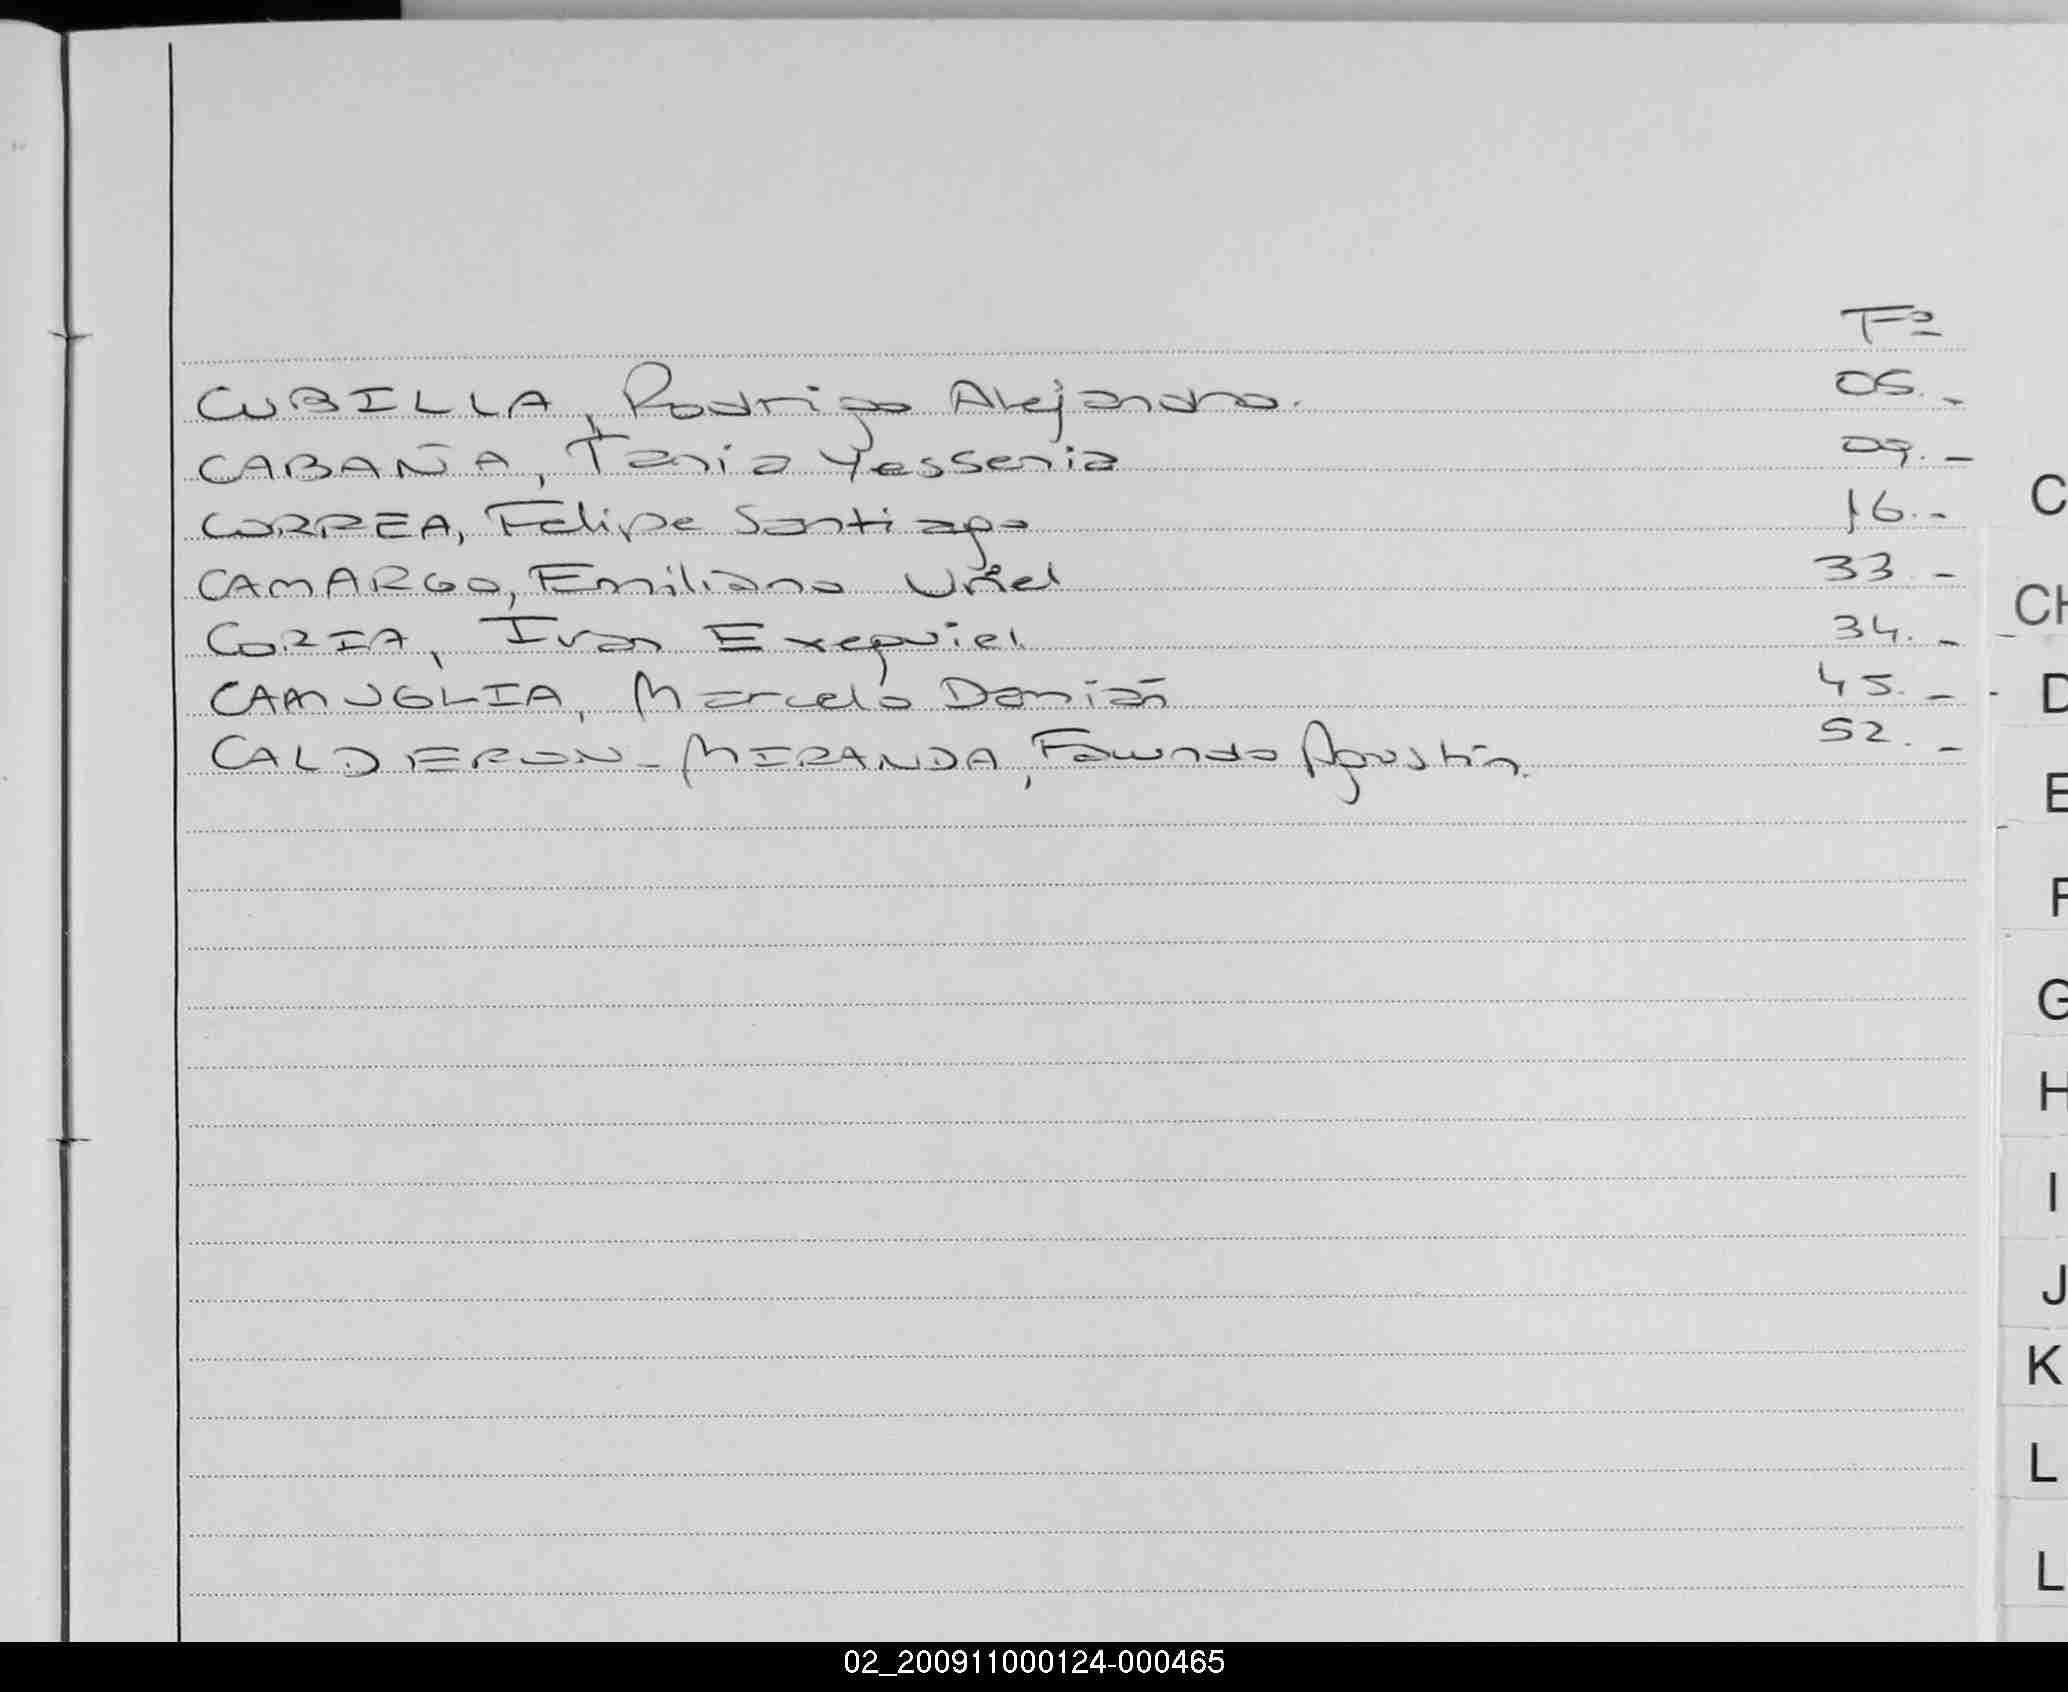 Fº
CUBILLA, Rodrigo Alejandro.
05.-
CABAÑA, Tania Yessenia
09.-
CORREA, Felipe Santiago
16.-
CAMARGO, Emiliano Uriel
33.-
CORIA, Ivan Exequiel
34.-
CAMUGLIA, Marcelo Damián
45.-
CALDERON-MIRANDA, Facundo Agustín.
52.-
C
CH
D
E
F
G
H
I
J
K
L
L
02_200911000124-000465